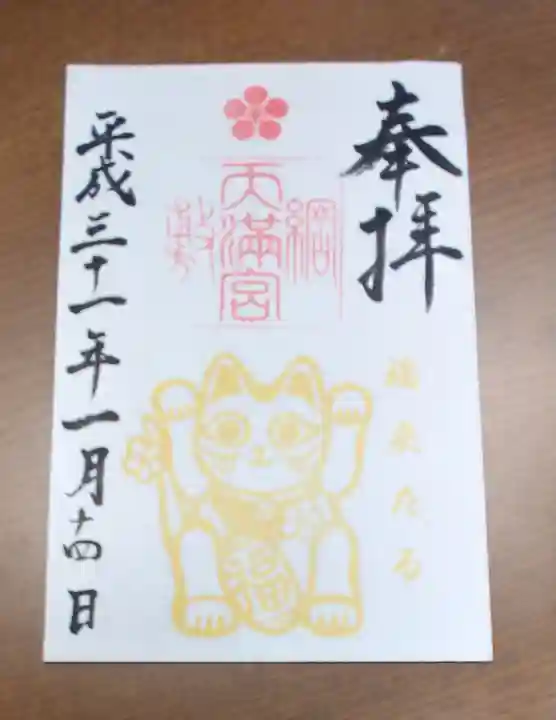 奉拝
綱敷天満宮
福来たる
福
平成三十一年一月十四日